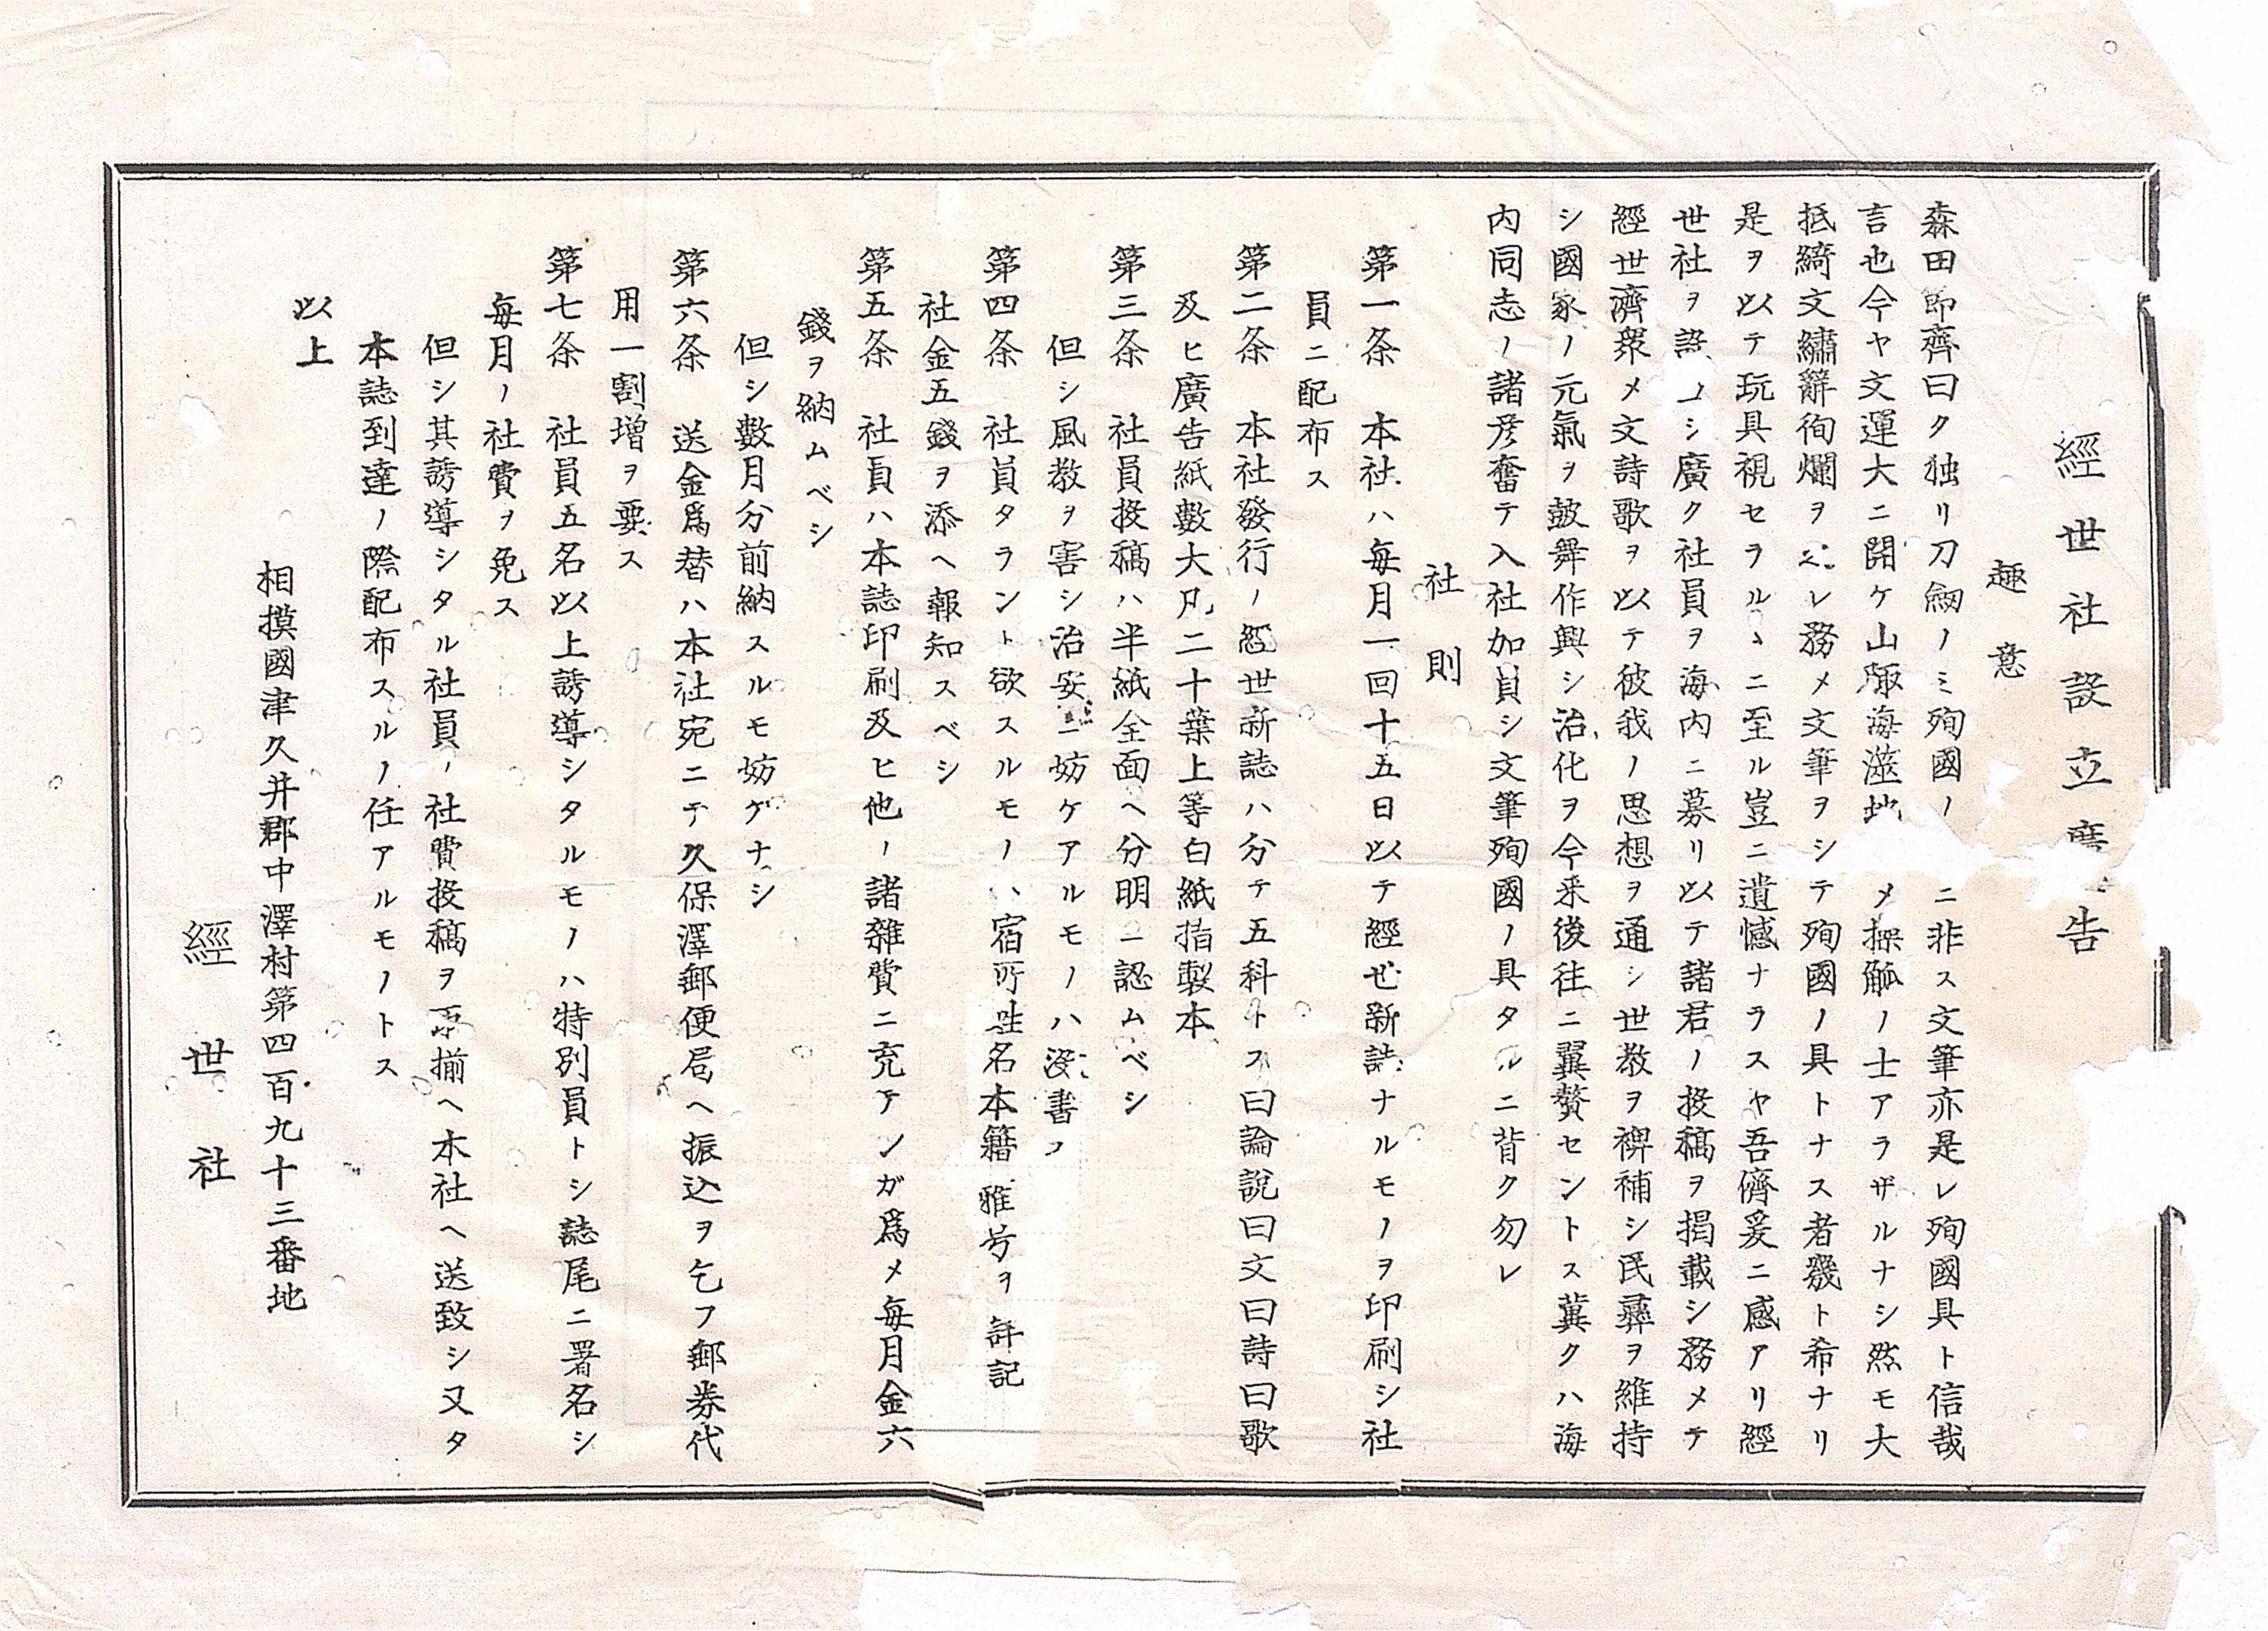 經世社設立廣告
趣意
森田節齊曰ク独リ刀劔ノミ殉國ノ ニ非ス文筆亦是レ殉國具ト信哉
言也今ヤ文運大ニ開ケ山陬海澨地 メ操觚ノ士アラザルナシ然モ大
抵綺文繡辭徇爛ヲ レ務メ文筆ヲシテ殉國ノ具トナス者幾ト希ナリ
是ヲ以テ玩具視セラルヽニ至ル豈ニ遺憾ナラスヤ吾儕爰ニ感アリ經
世社ヲ設 シ廣ク社員ヲ海内ニ募リ以テ諸君ノ投稿ヲ掲載シ務メテ
經世濟衆メ文詩歌ヲ以テ彼我ノ思想ヲ通シ世教ヲ裨補シ民彛ヲ維持
シ國家ノ元氣ヲ鼓舞作興シ治化ヲ今来後往ニ翼賛セントス冀クハ海
内同志ノ諸彦奮テ入社加員シ文筆殉國ノ具タルニ背ク勿レ
社則
第一条 本社ハ毎月一回十五日以テ經世新誌ナルモノヲ印刷シ社
員ニ配布ス
第二条 本社發行ノ經世新誌ハ分テ五科トス曰論説曰文曰詩曰歌
及ヒ廣告紙數大凡二十葉上等白紙 製本
第三条 社員投稿ハ半紙全面ヘ分明ニ認ムベシ
但シ風教ヲ害シ治安 ニ妨ケアルモノハ没書ス
第四条 社員タラント欲スルモノハ宿所姓名本籍雅号ヲ詳記
社金五錢ヲ添ヘ報知スベシ
第五条 社員ハ本誌印刷及ヒ他ノ諸雜費ニ充テンガ爲メ毎月金六
錢ヲ納ムベシ
但シ數月分前納スルモ妨ゲナシ
第六条 送金爲替ハ本社宛ニテ久保澤郵便局ヘ振込ヲ乞フ郵券代
用一割増ヲ要ス
第七条 社員五名以上誘導シタルモノハ特別員トシ誌尾ニ署名シ
毎月ノ社費ヲ免ス
但シ其誘導シタル社員ノ社費投稿ヲ取揃ヘ本社ヘ送致シ又タ
本誌到達ノ際配布スルノ任アルモノトス
以上
相摸國津久井郡中澤村第四百九十三番地
經世社